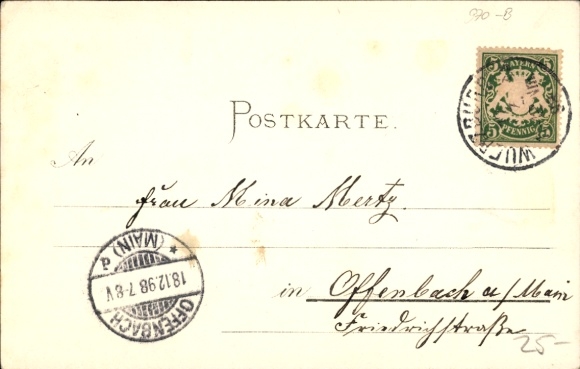 370-B
BAYERN
5 5
PFENNIG
WUERZBURG
POSTKARTE.
An
Frau Mina Mertz.
in Offenbach a/Main
Friedrichstraße
25-
OFFENBACH (MAIN)
18.12.98.7-8V